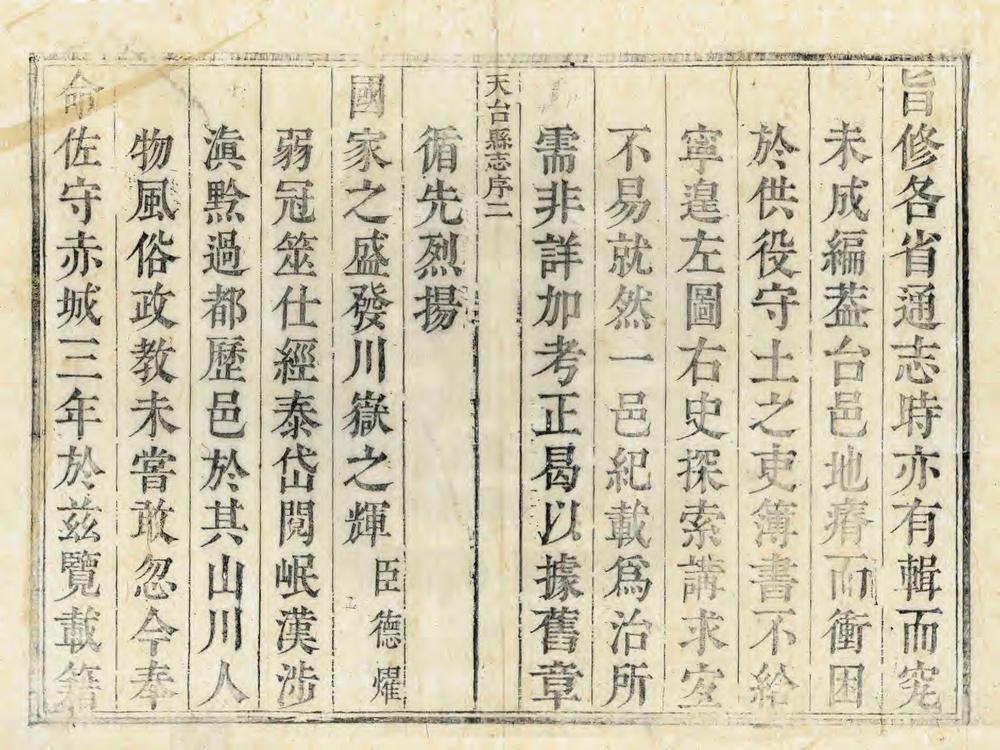 旨修各省通志時亦有輯而究
未成編葢台邑地瘠而衝困
於供役守土之吏簿書不給
寧遑左圖右史探索講求㝎
不易就然一邑紀載爲治所
需非詳加考正曷以據舊章
天台縣志序二
循先烈揚
國家之盛發川嶽之輝臣德燿
弱冠筮仕經泰岱閱岷漢涉
滇黔過都歷邑於其山川人
物風俗政教未嘗敢忽今奉
命佐守赤城三年於兹覽載籍